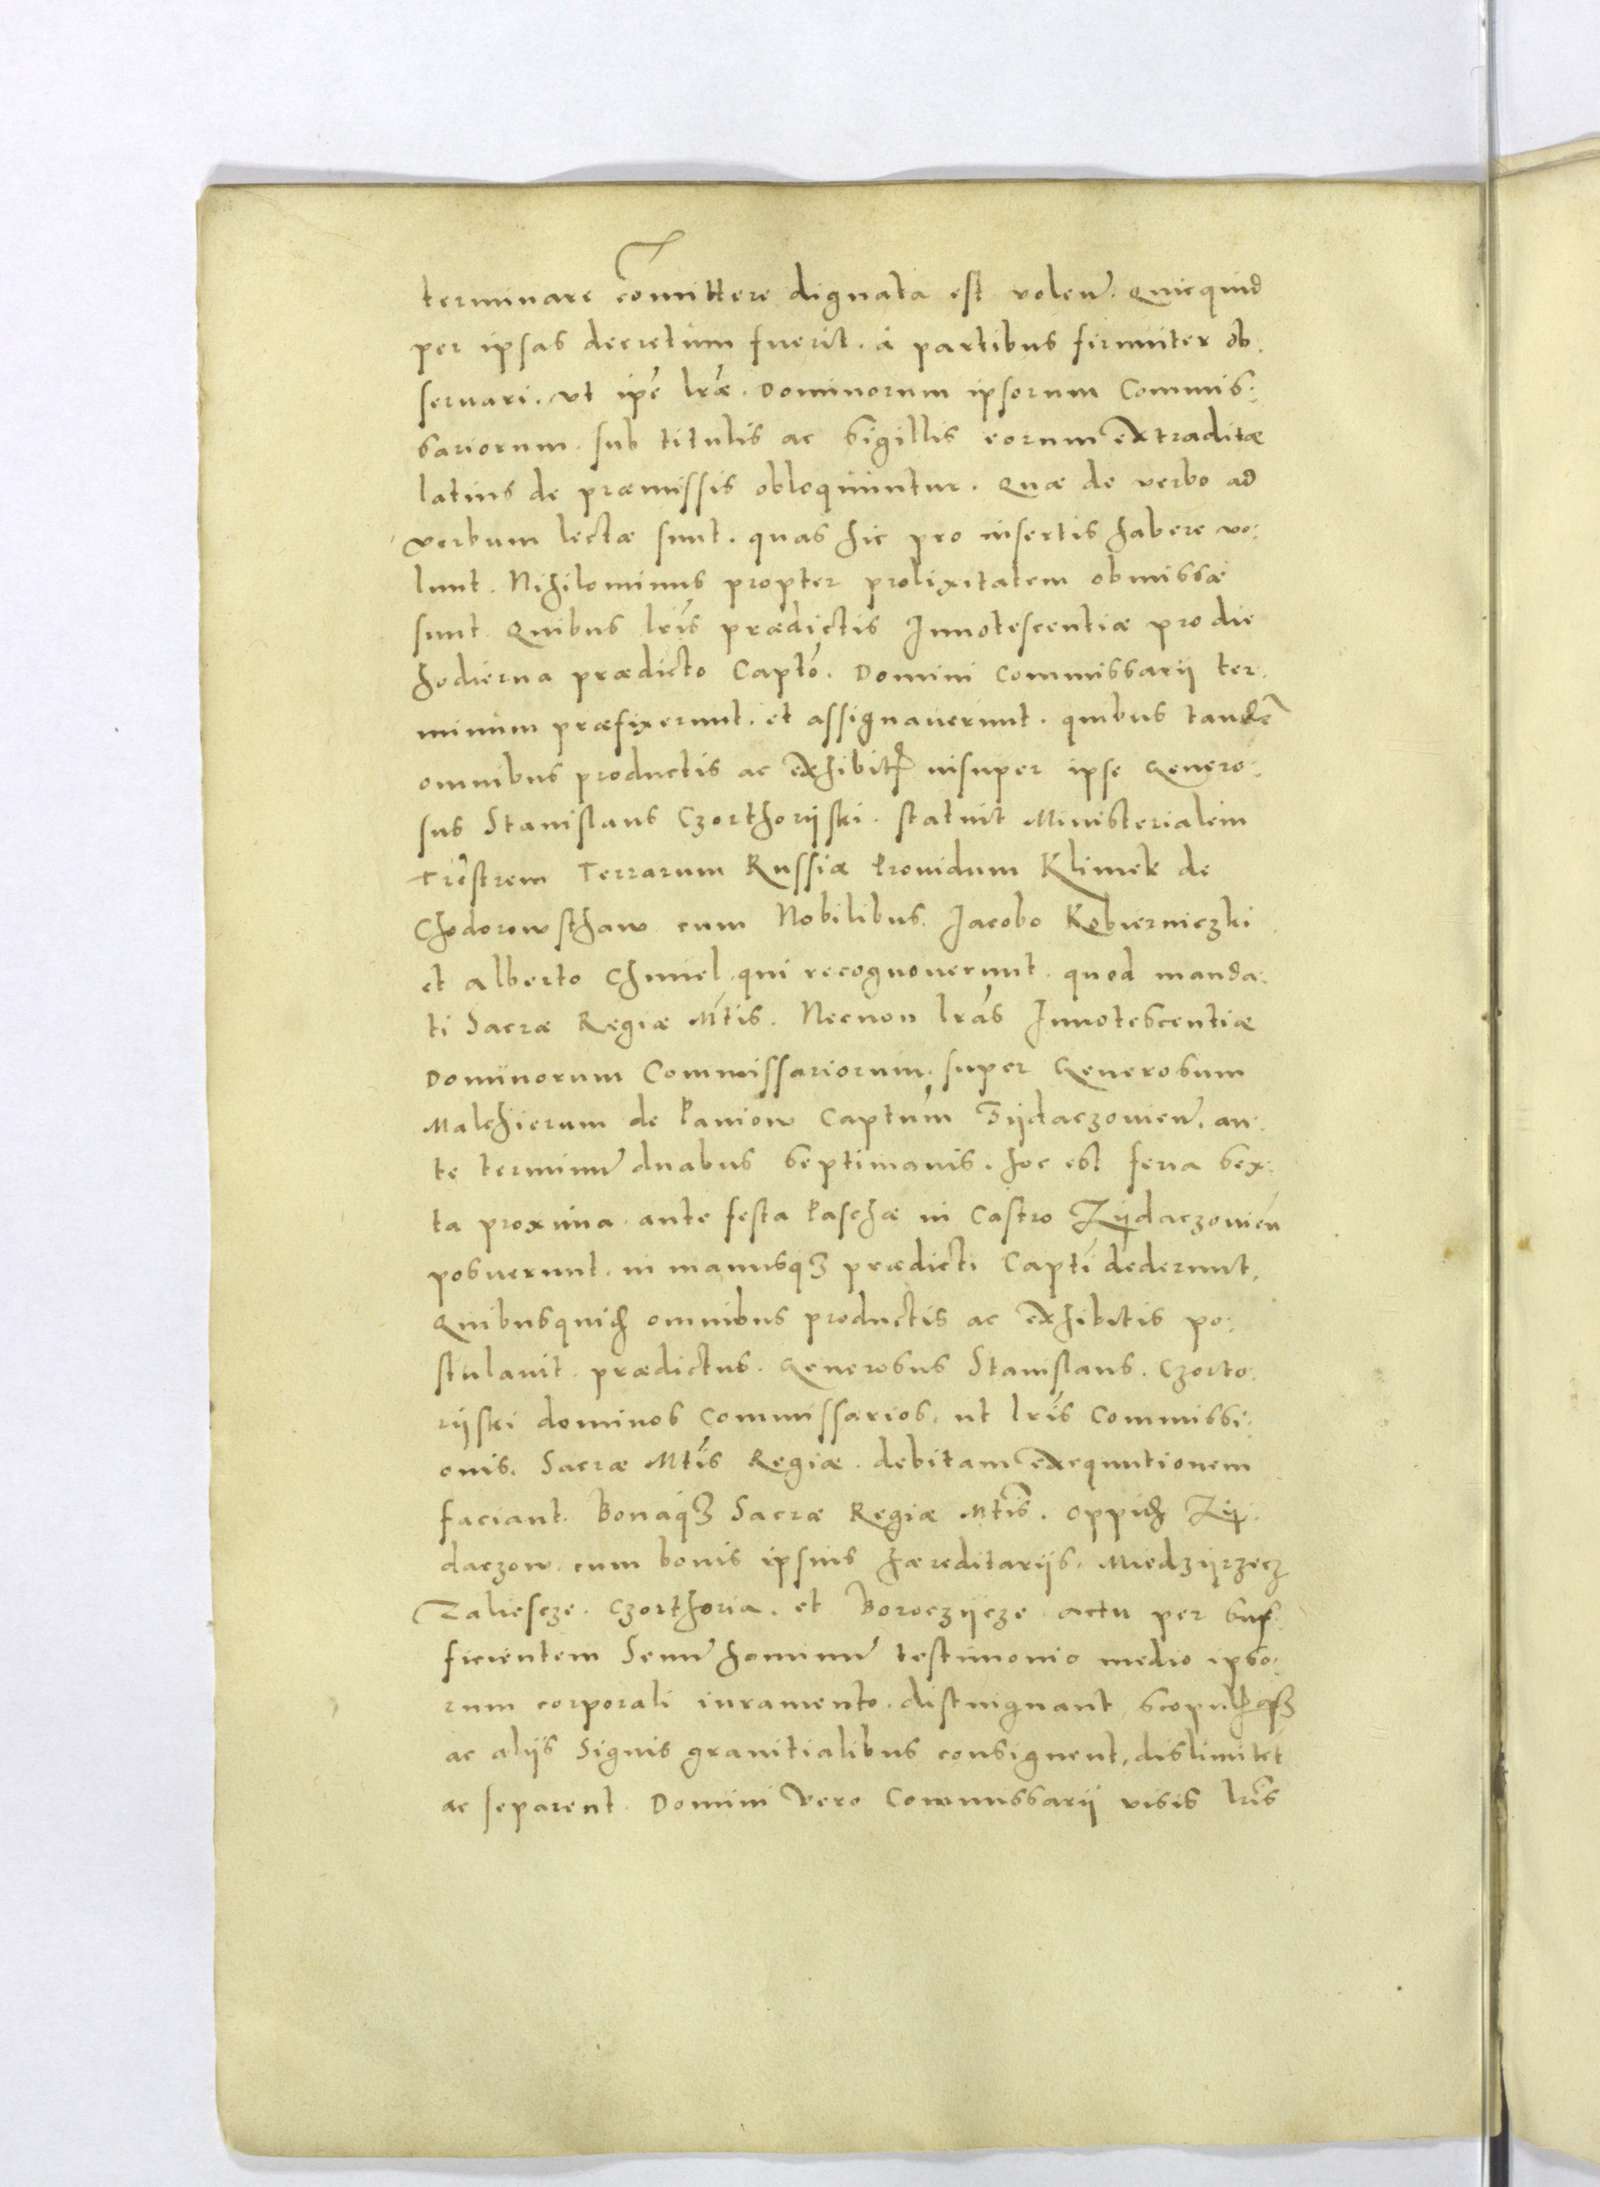 terminare comittere dignata est volen. Quicquid
per ipsas decretum fuerit. a partibus firmiter ob.
seruari. vt ipe lræ. Dominorum ipsorum Commis:
sariorum. sub titulis ac sigillis eorum extraditæ
latius de præmissis obloquuntur. Quæ de verbo ad
verbum lectæ sunt. quas hic pro insertis habere vo:
lunt. Nihilominus propter prolixitatem obmissæ
sunt. Quibus lris prædictis Innotescentiæ pro die
hodierna prædicto Capto. Domini Commissarij ter.
minum præfixerunt. et assignauerunt. quibus tande
omnibus productis ac exhibit insuper ipse Genero:
sus Stanislaus Czorthorijski. statuit Ministerialem
Trestrem Terrarum Russiæ Prouidum Klimek de
Chodorowsthaw cum Nobilibus. Jacobo Kobierniczki
et Alberto Chmiel. qui recognouerunt. quod manda:
ti Sacræ Regiæ Mtis. Necnon lras Innotescentiæ
Dominorum Commissariorum. super Generosum
Malchierum de Paniow Captum Sijdaczouien. an:
te terminu duabus septimanis. hoc est feria sex:
ta proxima. ante festa Paschæ in Castro Zijdaczouien
posuerunt. in manusq3 prædicti Capti dederunt.
Quibusquid omnibus productis ac exhibitis po:
stulauit. prædictus. Generosus Stanislaus. Czorto:
rijski dominos Commissarios. ut lris Commissi:
onis. Sacræ Mtis Regiæ. debitam exequutionem
faciant. Bonaq3 Sacræ Regiæ Mtis. Oppid Zij:
daczow. cum bonis ipsius hæreditarijs. Miedzijrzecz
Zaliescze. Czorthoria. et Boroczijcze. actu per suf:
ficientem Senu hominu testimonio medio ipso:
rum corporali iuramento. distinguant, scopul q3
ac alijs Signis granitialibus consignent, dislimitet
ac separent. Domini vero Commissarij visis lris